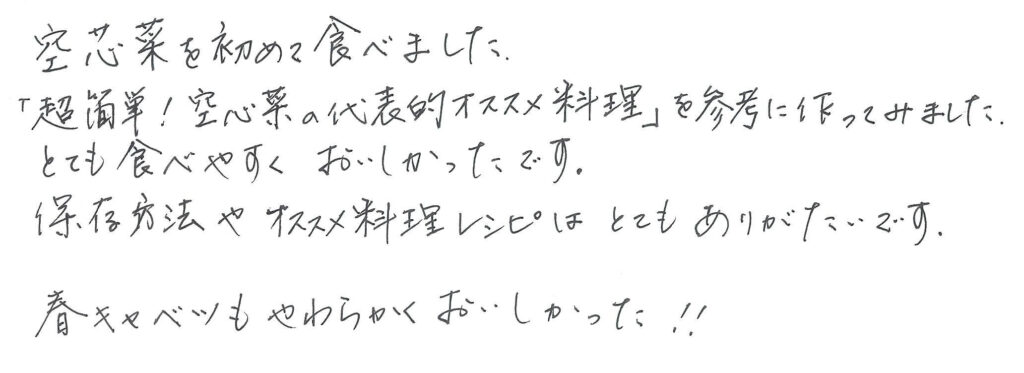 空芯菜を初めて食べました.
「超簡単!空心菜の代表的オススメ料理」を参考に作ってみました.
とても食べやすく おいしかったです.
保存方法や オススメ料理レシピは とても ありがたいです.
春キャベツも やわらかく おいしかった!!